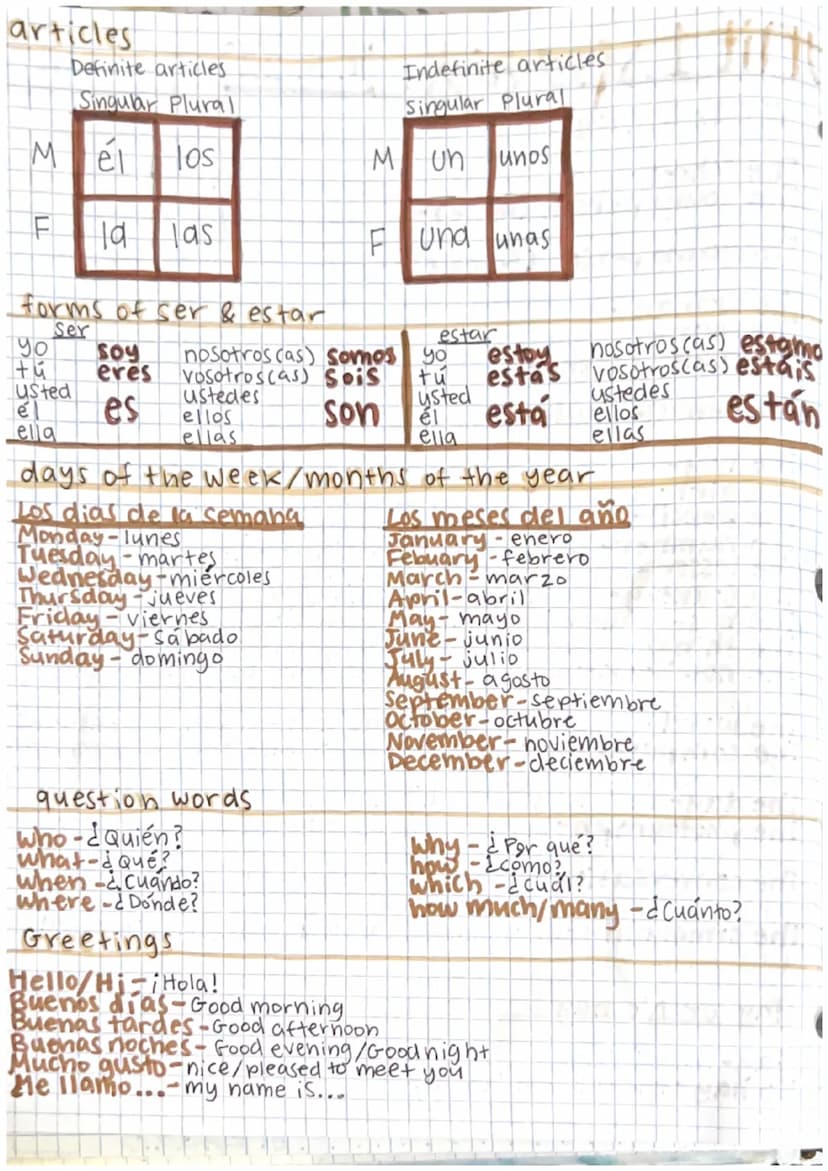 articles
Definite articles
Singular Plural
M él los
F la las
Indefinite articles
Singular Plural
M un unos
F una unas
forms of ser & estar
ser
yo soy nosotros(as) somos
tú eres vosotros(as) sois
usted ustedes
él es ellos son
ella ellas
estar
yo estoy nosotros(as) estamo
tú estás vosotros(as) estáis
usted ustedes
él está ellos están
ella ellas
days of the week/months of the year
Los dias de la semana
Monday - lunes
Tuesday - martes
Wednesday - miércoles
Thursday - jueves
Friday - viernes
Saturday - sábado
Sunday - domingo
Los meses del año
January - enero
Febuary - febrero
March - marzo
April - abril
May - mayo
June - junio
July - julio
August - agosto
September - septiembre
October - octubre
November - noviembre
December - deciembre
question words
who - ¿Quién?
what - ¿Qué?
when - ¿Cuándo?
where - ¿Dónde?
Why - ¿Por qué?
how - ¿cómo?
which - ¿cuál?
how much/many - ¿Cuánto?
Greetings
Hello/Hi - ¡Hola!
Buenos días - Good morning
Buenas tardes - Good afternoon
Buenas noches - Good evening/Goodnight
Mucho gusto - nice/pleased to meet you
Me llamo... - my name is...